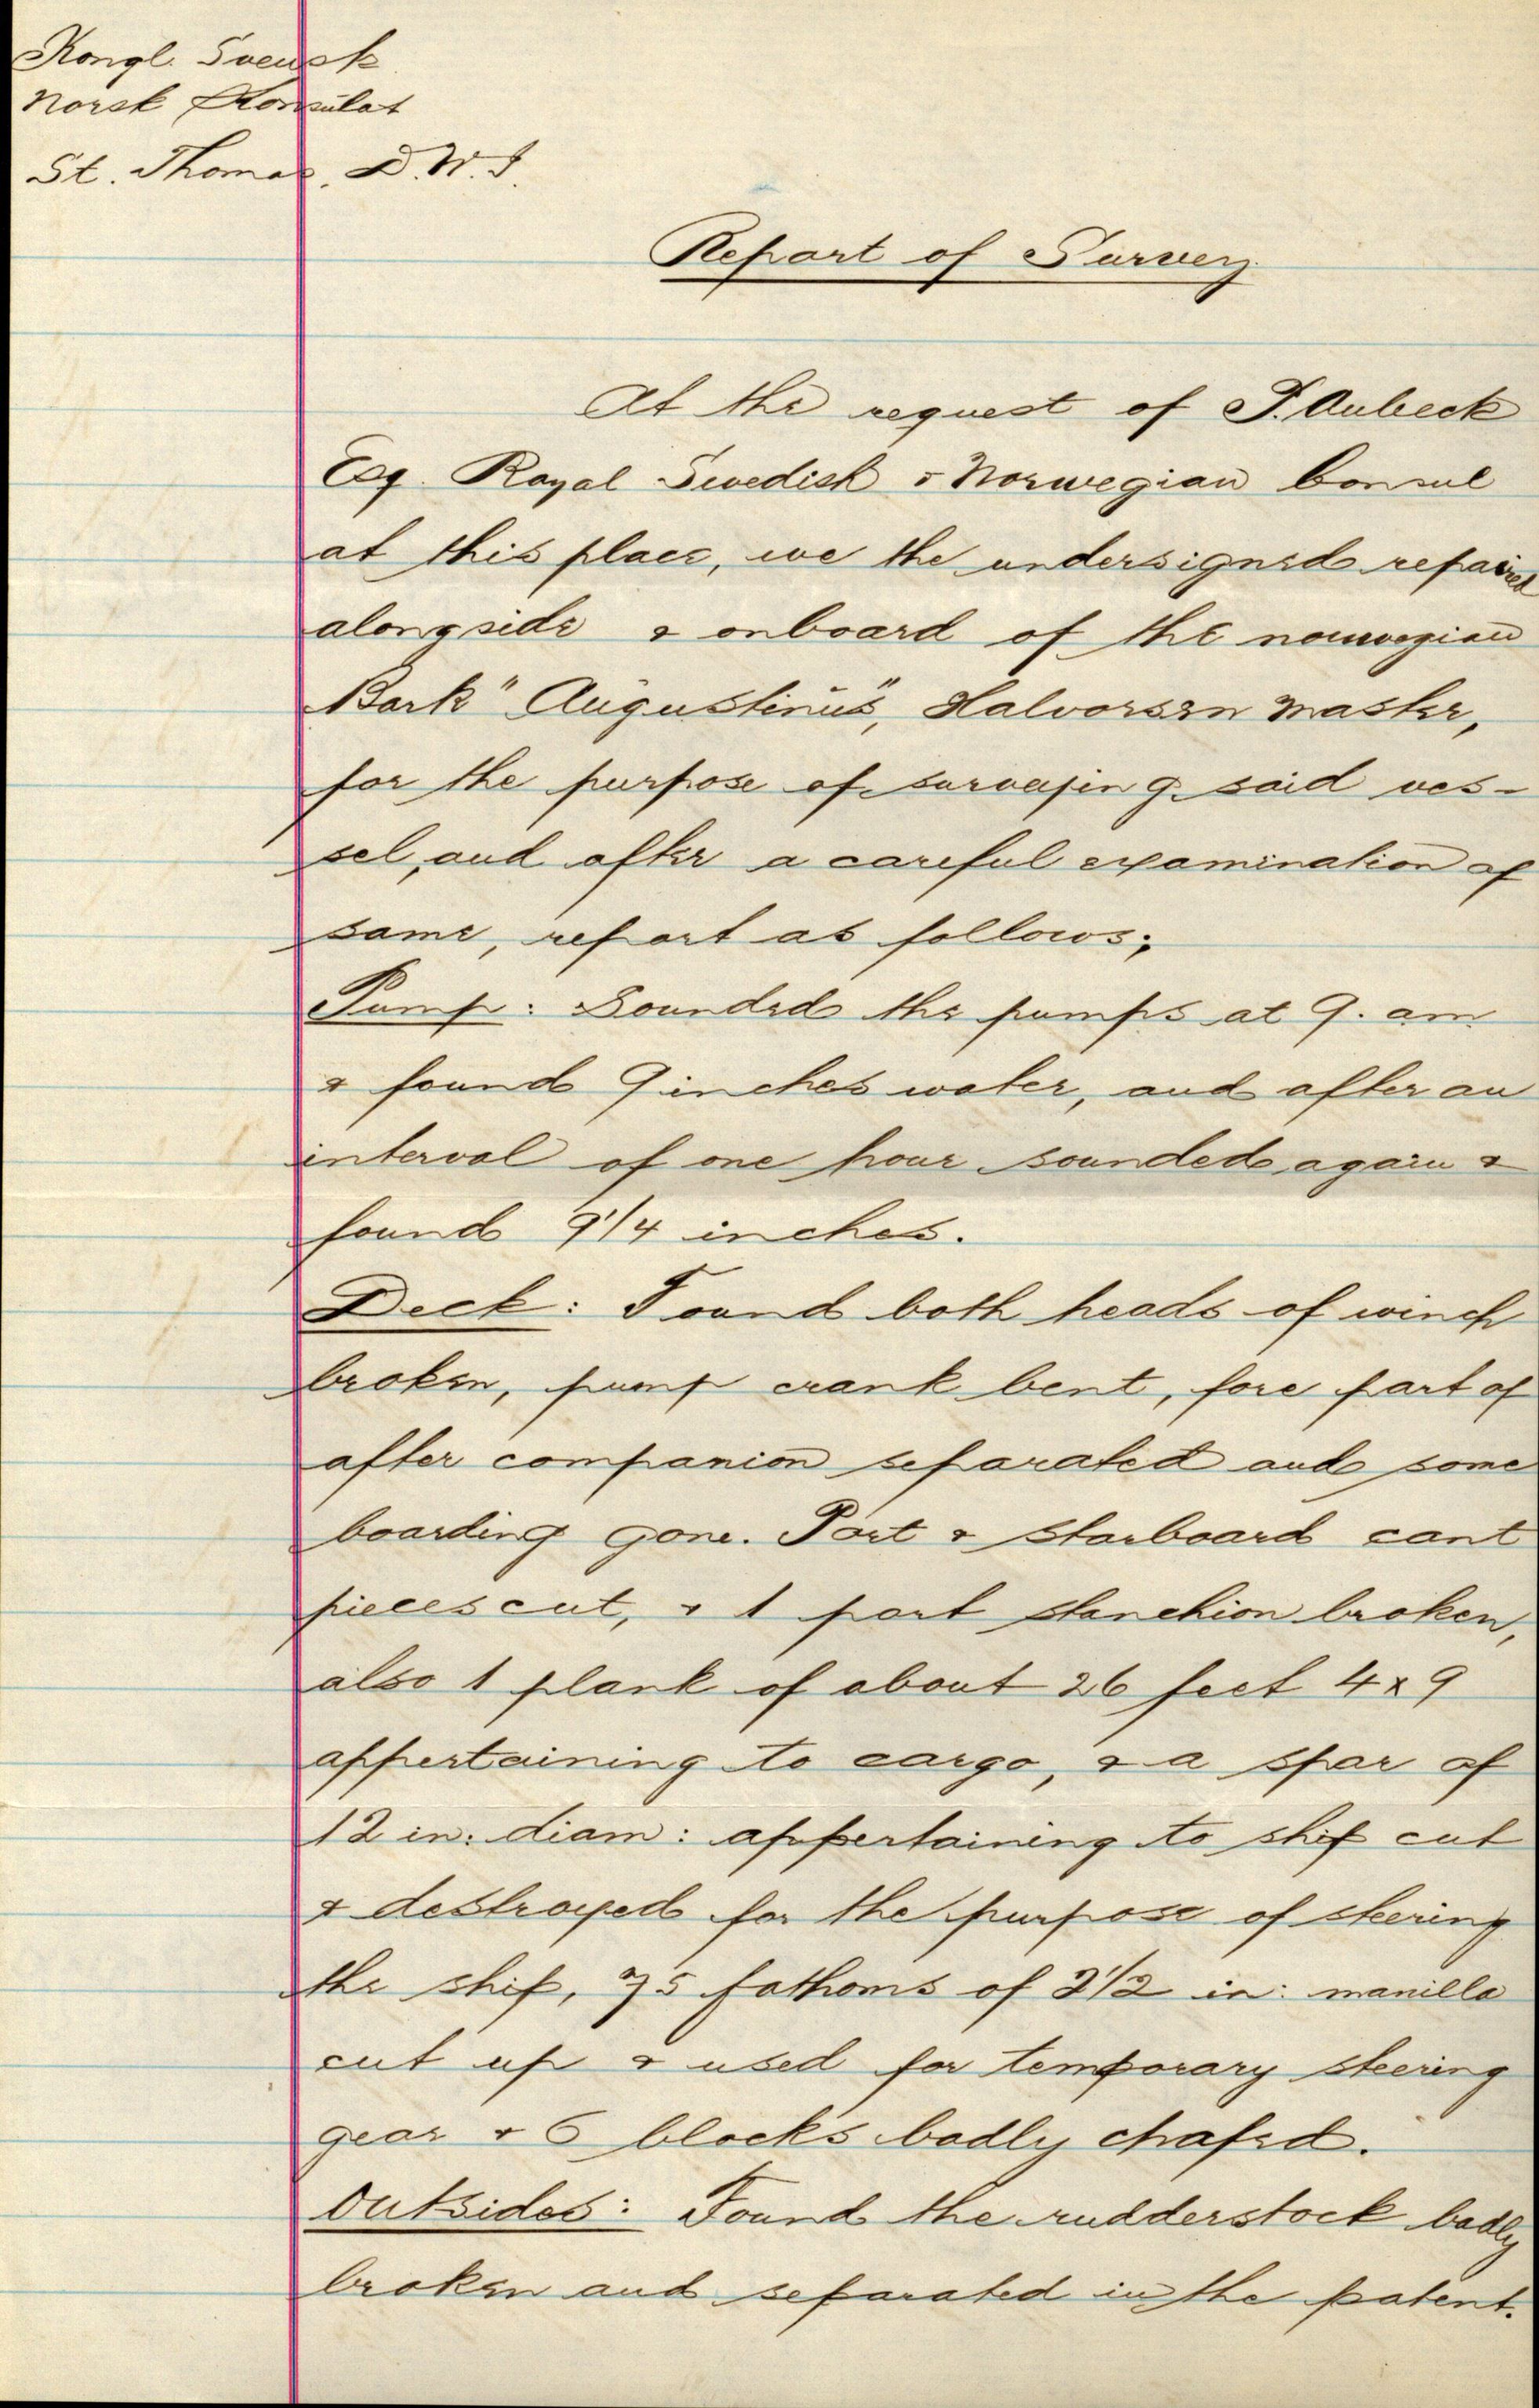 Kongl. Svensk
Norsk Konsulat
St. Thomas, D.W.I.
Report of Survey.
At the request of F. Aubeck
Esq. Royal Swedish & Norwegian Consul
at this place, we the undersigned repaired
alongside & onboard of the norwegian
Bark "Augustinus", Halvorsen Master,
for the purpose of surveying said ves-
sel, and after a careful examination of
same, report as follows;
Pump: Sounded the pumps at 9. am
& found 9 inches water, and after an
interval of one hour sounded again &
found 9 1/4 inches.
Deck: Found both heads of winch
broken, pump crank bent, fore part of
after companion separated and some
boarding gone. Port & Starboard cant
pieces cut, & 1 port stanchion broken,
also 1 plank of about 26 feet 4 x 9
appertaining to cargo, & a spar of
12 in: diam: appertaining to ship cut
& destroyed for the purpose of steering
the ship, 75 fathoms of 2 1/2 in: manilla
cut up & used for temporary steering
gear & 6 blocks badly chafed.
Outsides: Found the rudderstock badly
broken and separated in the patent.